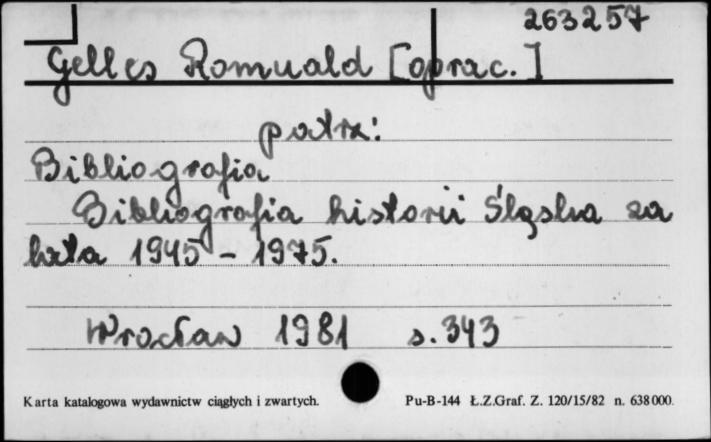 263257
Gelles Romuald [oprac.]
patrz:
Bibliografia
Bibliografia historii Śląska za
lata 1945 - 1975.
Wrocław 1981 s. 343
Karta katalogowa wydawnictw ciągłych i zwartych. Pu-B-144 Ł.Z.Graf. Z. 120/15/82 n. 638000.